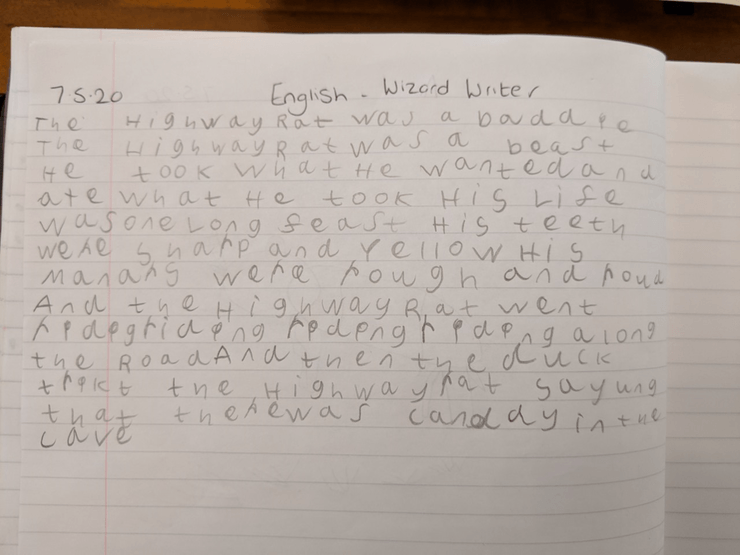 7.5.20 English - Wizard Writer
The HighwayRat was a baddee
The HighwayRat was a beast
He took what He wanted and
ate what He took His Life
was one Long feast His teeth
were sharp and Yellow His
manars were rough and roud
And the HighwayRat went
redegrideng redengredeng along
the Road And then the duck
trekt the Highwayrat sayung
that therewas canddy in the
cave